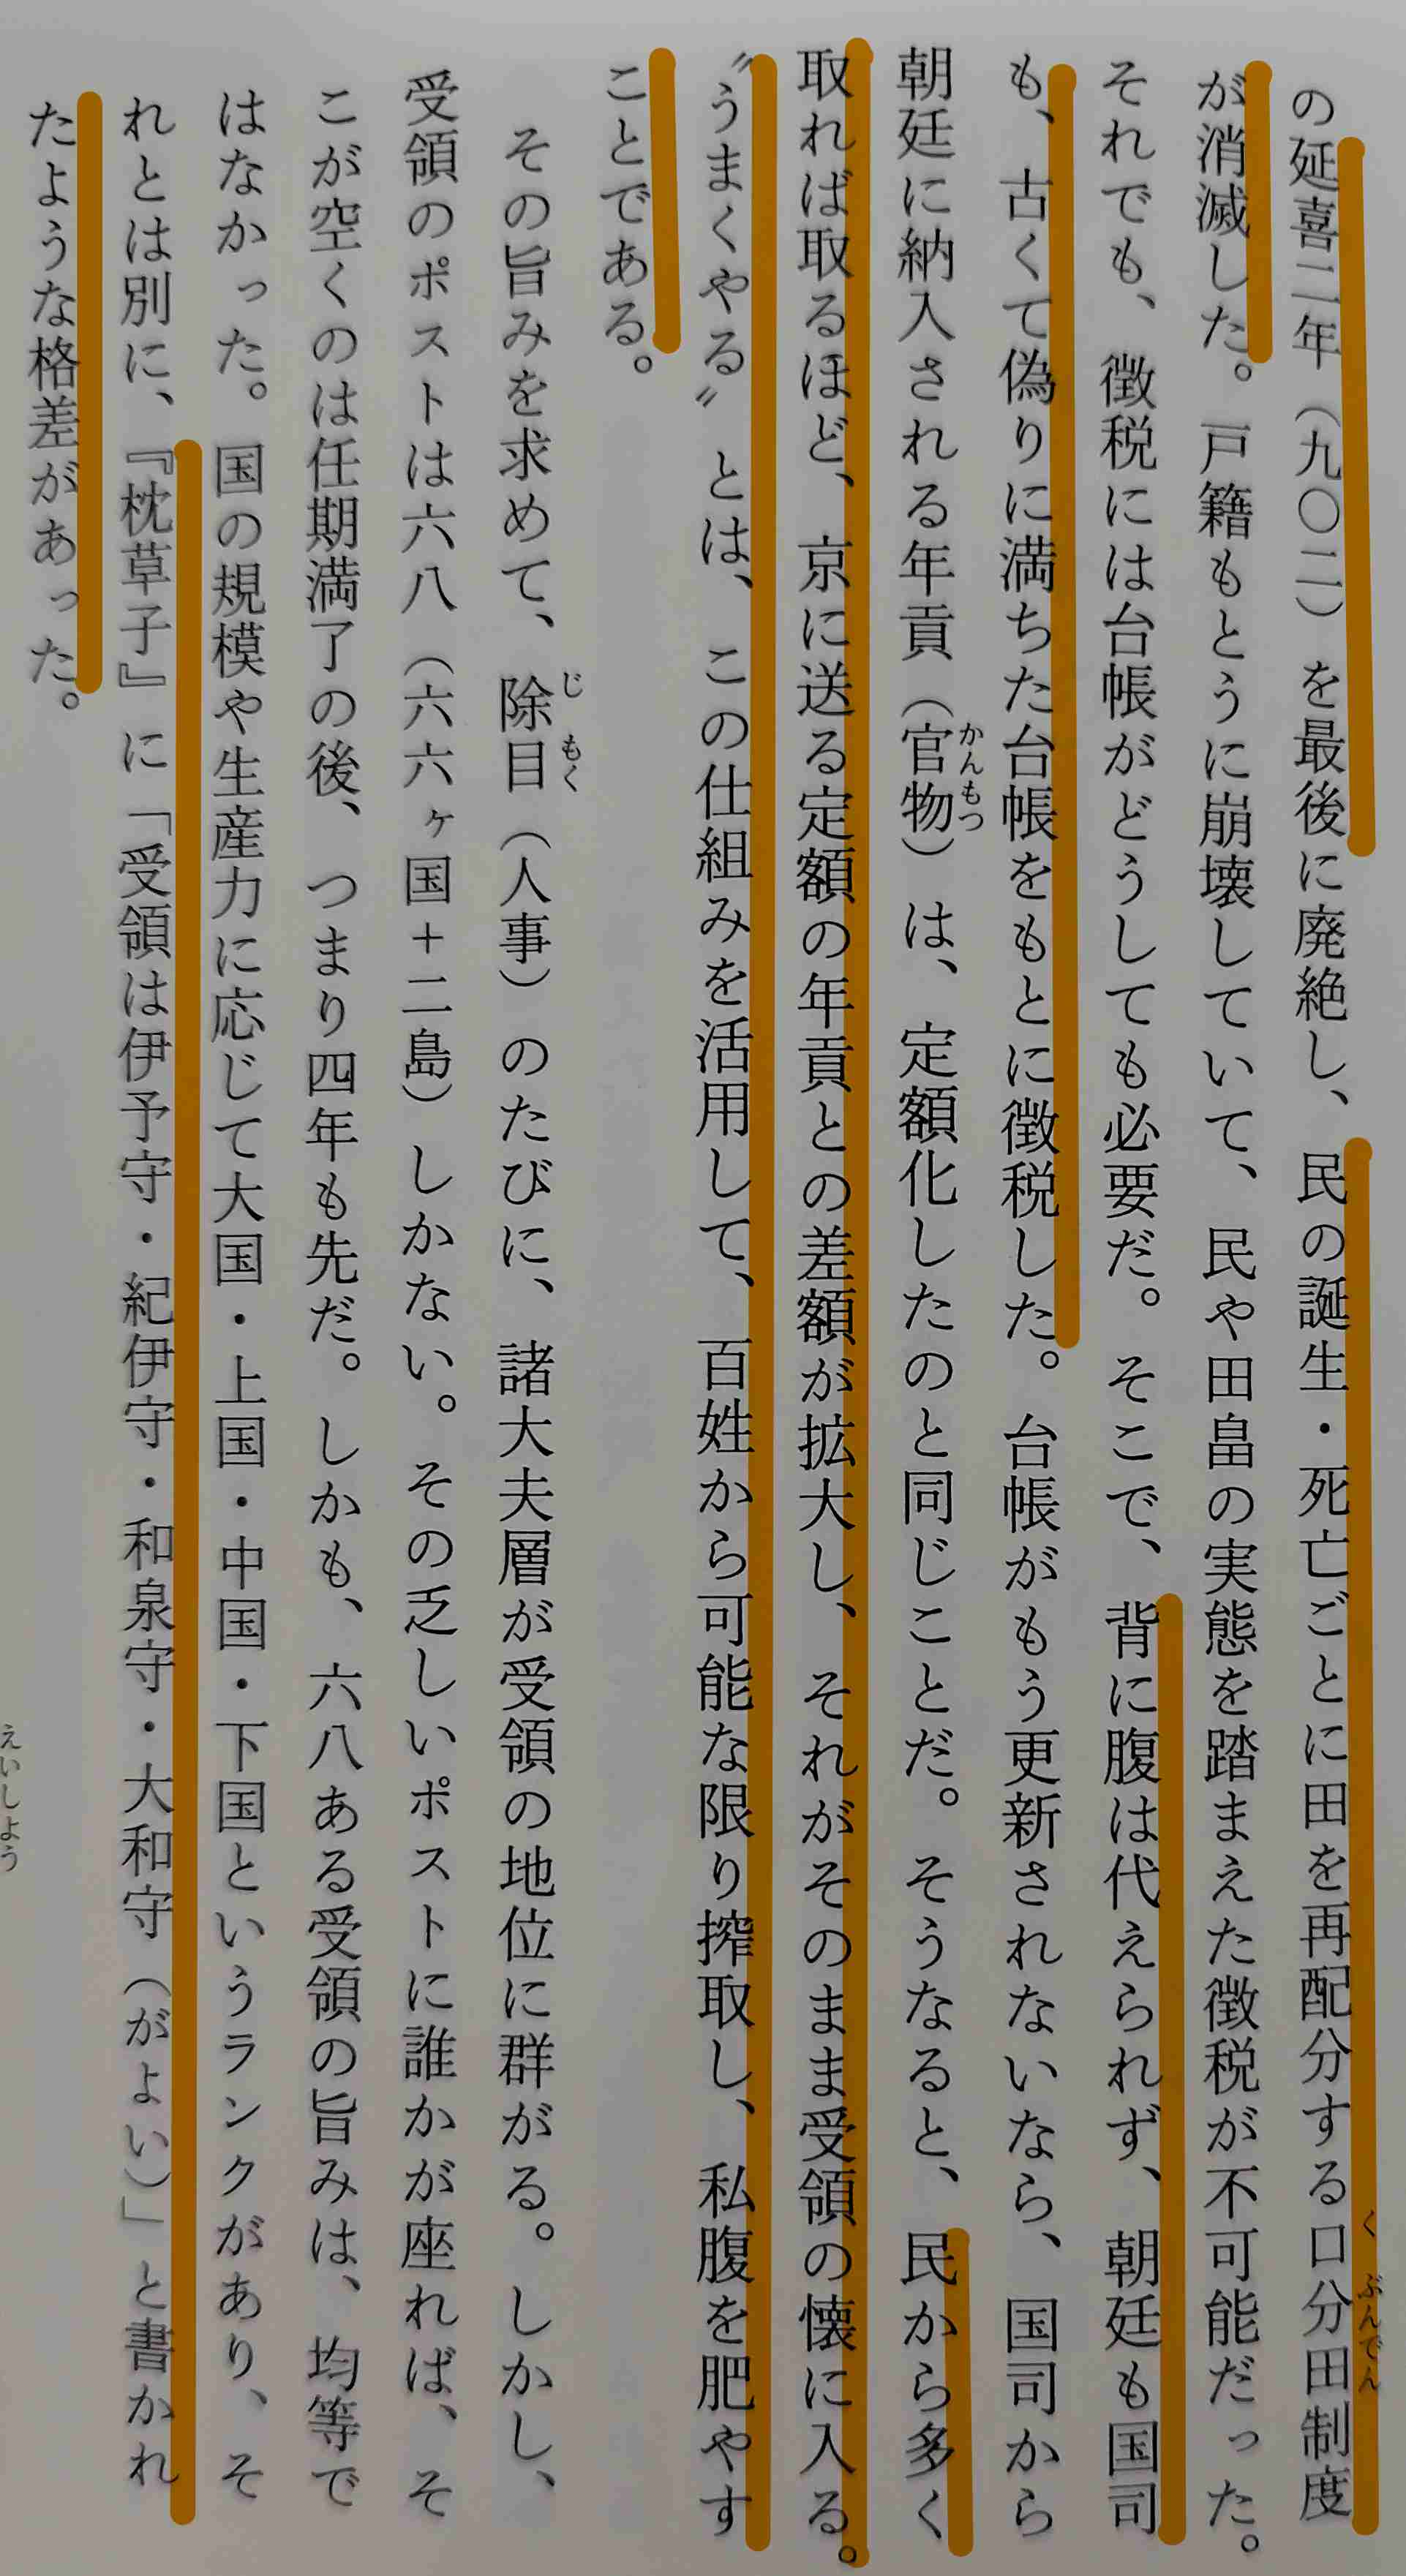 の延喜二年（九〇二）を最後に廃絶し、民の誕生・死亡ごとに田を再配分する口分田制度
くぶんでん
が消滅した。戸籍もとうに崩壊していて、民や田畠の実態を踏まえた徴税が不可能だった。
それでも、徴税には台帳がどうしても必要だ。そこで、背に腹は代えられず、朝廷も国司
も、古くて偽りに満ちた台帳をもとに徴税した。台帳がもう更新されないなら、国司から
朝廷に納入される年貢（官物）は、定額化したのと同じことだ。そうなると、民から多く
かんもつ
取れば取るほど、京に送る定額の年貢との差額が拡大し、それがそのまま受領の懐に入る。
〝うまくやる〟とは、この仕組みを活用して、百姓から可能な限り搾取し、私腹を肥やす
ことである。
その旨みを求めて、除目（人事）のたびに、諸大夫層が受領の地位に群がる。しかし、
じもく
受領のポストは六八（六六ヶ国＋二島）しかない。その乏しいポストに誰かが座れば、そ
こが空くのは任期満了の後、つまり四年も先だ。しかも、六八ある受領の旨みは、均等で
はなかった。国の規模や生産力に応じて大国・上国・中国・下国というランクがあり、そ
れとは別に、『枕草子』に「受領は伊予守・紀伊守・和泉守・大和守（がよい）」と書かれ
たような格差があった。
えいしよう